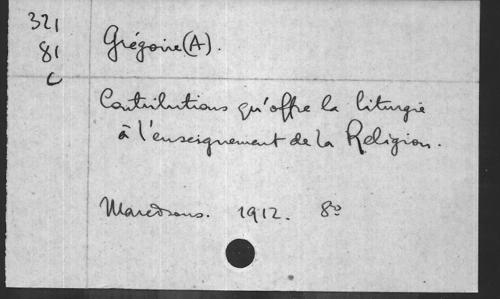 321
81
C
Grégoire (A).
Contributions qu'offre la liturgie
à l'enseignement de la Religion.
Maredsous. 1912. 8º